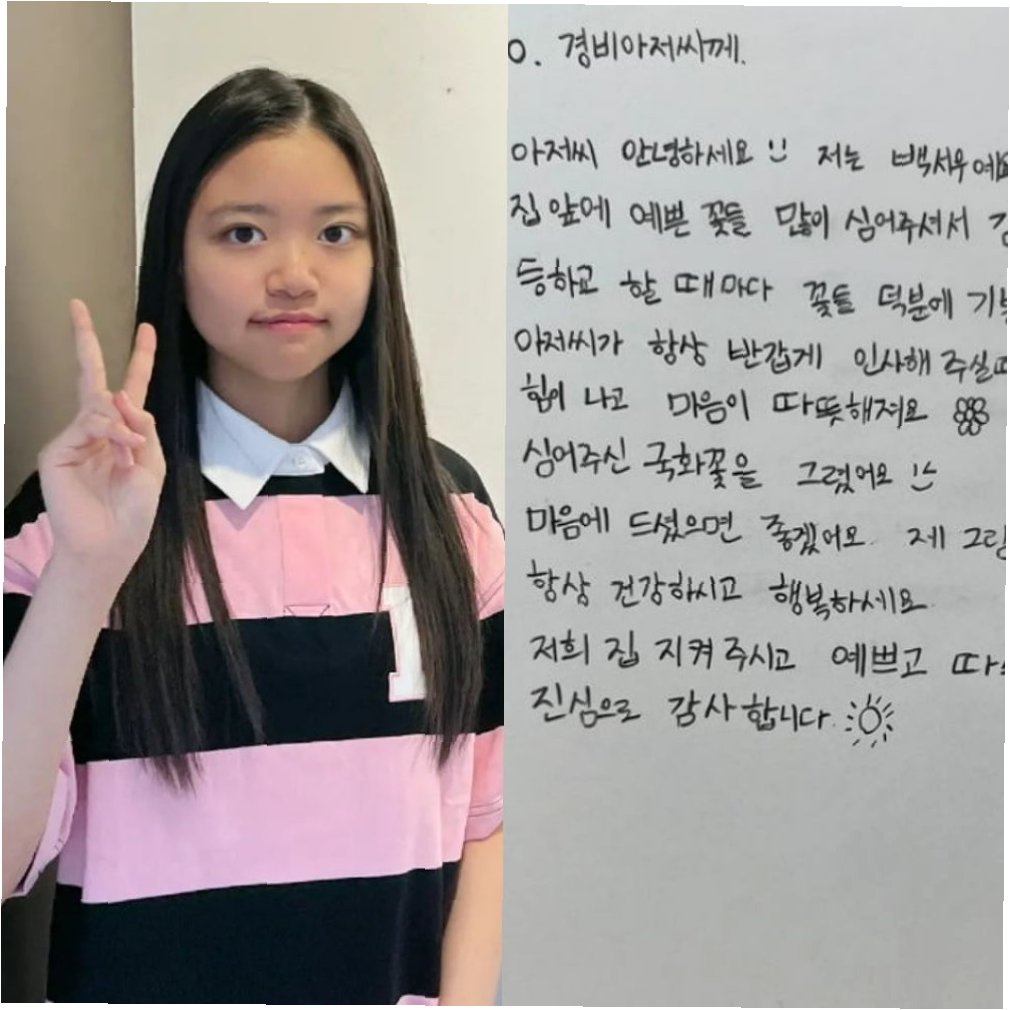 0. 경비아저씨께.
아저씨 안녕하세요 저는 백서우예요
집 앞에 예쁜 꽃들 많이 심어주셔서
등하교 할 때마다 꽃들 덕분에
아저씨가 항상 반갑게 인사해 주실
힘이 나고 마음이 따뜻해져요
심어주신 국화꽃을 그렸어요
마음에 드셨으면 좋겠어요. 제
항상 건강하시고 행복하세요
저희 집 지켜 주시고 예쁘고
진심으로 감사합니다.